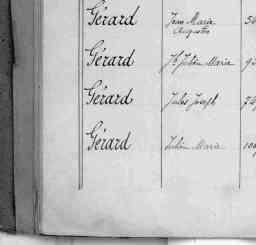 Gérard Jean Marie
Auguste
Gérard Jh Julien Marie
Gérard Jules Joseph
Gérard Julien Marie